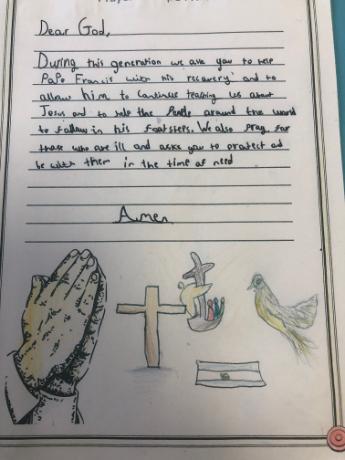 Dear God,
During this generation we ask you to help
Pope Francis with his recovery and to
allow him to continue teaching us about
Jesus and to help the People around the world
to follow in his footsteps. We also pray for
those who are ill and aske you to protect ad
be with them in the time of need
Amen